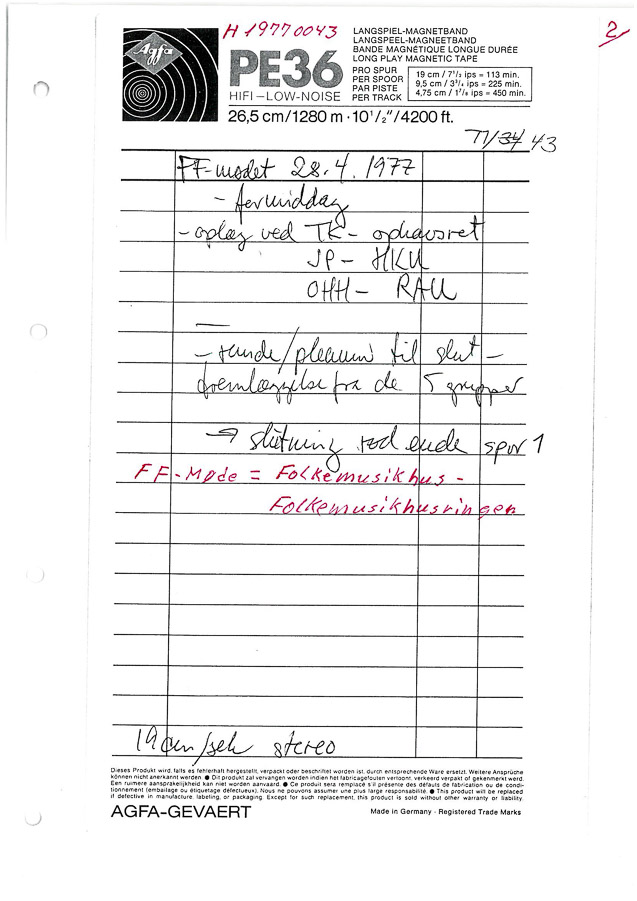 H 19770043
2
Agfa
PE36
HIFI-LOW-NOISE
LANGSPIEL-MAGNETBAND
LANGSPEEL-MAGNEETBAND
BANDE MAGNÉTIQUE LONGUE DURÉE
LONG PLAY MAGNETIC TAPE
PRO SPUR
PER SPOOR
PAR PISTE
PER TRACK
19 cm / 7 1/2 ips = 113 min.
9,5 cm / 3 3/4 ips = 225 min.
4,75 cm / 1 7/8 ips = 450 min.
26,5 cm/1280 m · 10 1/2″/4200 ft.
77/34 43
FF-mødet 28.4.1977
- formiddag
- oplæg ved TK - ophavsret
JP - HKU
OHH - RAU
—
- runde/plenum til slut -
fremlæggelse fra de 5 grupper
→ slutning rød ende spor 1
FF-Møde = Folkemusikhus -
Folkemusikhusringen
19 cm/sek stereo
Dieses Produkt wird, falls es fehlerhaft hergestellt, verpackt oder beschriftet worden ist, durch entsprechende Ware ersetzt. Weitere Ansprüche
können nicht anerkannt werden. ● Dit produkt zal vervangen worden indien het fabricagefouten vertoont, verkeerd verpakt of gekenmerkt werd.
Een ruimere aansprakelijkheid kan niet worden aanvaard. ● Ce produit sera remplacé s'il présente des défauts de fabrication ou de condi-
tionnement (emballage ou étiquetage défectueux). Nous ne pouvons assumer une plus large responsabilité. ● This product will be replaced
if defective in manufacture, labeling, or packaging. Except for such replacement, this product is sold without other warranty or liability.
AGFA-GEVAERT
Made in Germany · Registered Trade Marks